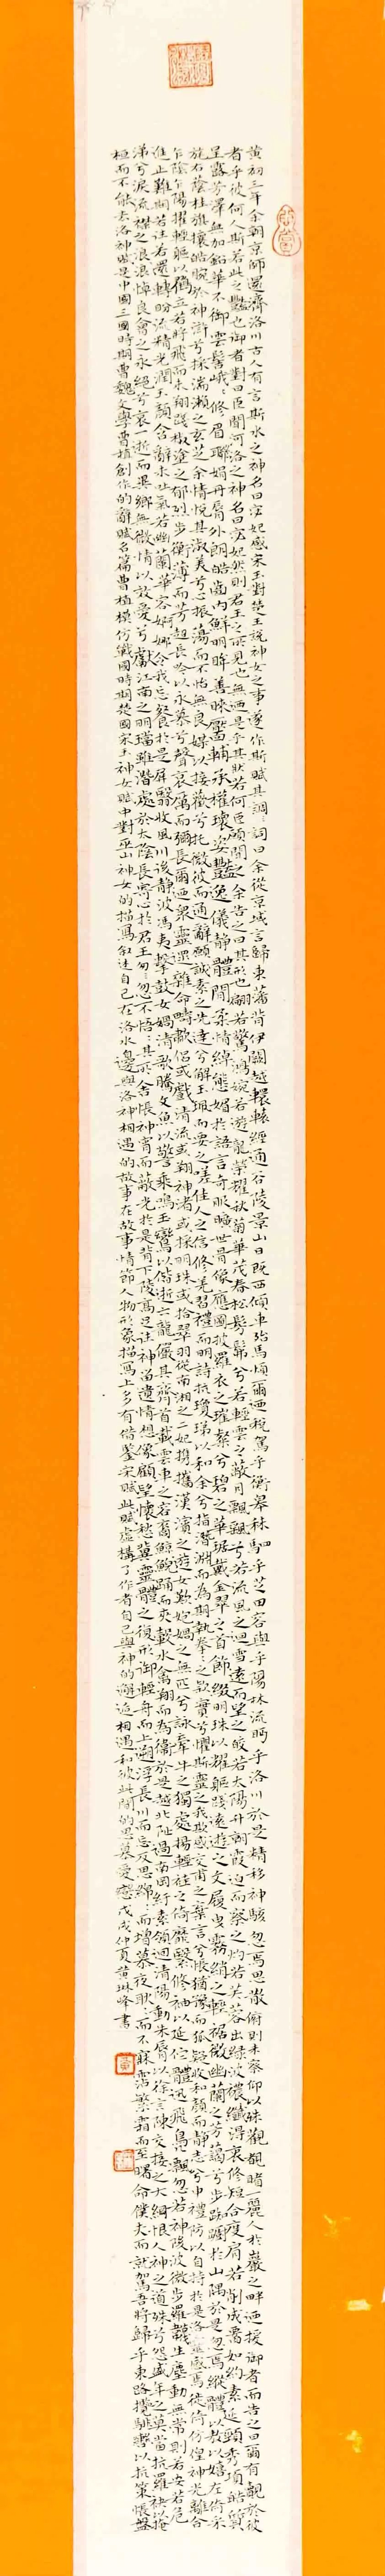 黃初三年余朝京師還濟洛川古人有言斯水之神名曰宓妃感宋玉對楚王說神女之事遂作斯賦其詞曰余從京域言歸東藩背伊闕越轘轅經通谷陵景山日既西傾車殆馬煩爾迺稅駕乎蘅皋秣駟乎芝田容與乎陽林流眄乎洛川於是精移神駭忽焉思散俯則未察仰以殊觀覩一麗人於巖之畔迺援御者而告之曰爾有覿於彼
者乎彼何人斯若此之豔也御者對曰臣聞河洛之神名曰宓妃然則君王之所見也無迺是乎其狀若何臣願聞之余告之曰其形也翩若驚鴻婉若遊龍榮耀秋菊華茂春松髣髴兮若輕雲之蔽月飄飄兮若流風之迴雪遠而望之皎若太陽升朝霞迫而察之灼若芙蓉出綠波穠纖得衷修短合度肩若削成腰如約素延頸秀項皓質
呈露芳澤無加鉛華不御雲髻峨峨修眉聯娟丹脣外朗皓齒內鮮明眸善睞靨輔承權瓌姿豔逸儀靜體閒柔情綽態媚於語言奇服曠世骨像應圖披羅衣之璀粲兮碧之華琚戴金翠之首飾綴明珠以耀軀踐遠遊之文履曳霧綃之輕裾微幽蘭之芳藹兮步踟躕於山隅於是忽焉縱體以遨以嬉左倚采
旄右蔭桂旗攘皓腕於神滸兮採湍瀨之玄芝余情悅其淑美兮心振蕩而不怡無良媒以接歡兮托微波而通辭願誠素之先達兮解玉珮而要之嗟佳人之信修羌習禮而明詩抗瓊珶以和余兮指潛淵而為期執拳拳之款實兮懼斯靈之我欺感交甫之棄言兮悵猶豫而狐疑收和顏而靜志兮申禮防以自持於是洛靈感焉徙倚仿偟神光離合
乍陰乍陽擢輕軀以鶴立若將飛而未翔踐椒塗之郁烈步蘅薄而流芳超長吟以永慕兮聲哀厲而彌長爾迺眾靈雜遝命疇嘯侶或戲清流或翔神渚或採明珠或拾翠羽從南湘之二妃攜漢濱之遊女歎匏媧之無匹兮詠牽牛之獨處揚輕袿之倚靡翳修袖以延佇體迅飛鳧飄忽若神陵波微步羅韈生塵動無常則若安若危
進止難期若往若還轉眄流精光潤玉顏含辭未吐氣若幽蘭華容婀娜令我忘飡於是屏翳收風川后靜波馮夷擊鼓女媧清歌騰文魚以警乘鳴玉鸞以偕逝六龍儼其齊首載雲車之容裔鯨鯢踴而夾轂水禽翔而為衛於是越北沚過南岡紆素領迴清陽動朱脣以徐言陳交接之大綱恨人神之道殊兮怨盛年之莫當抗羅袂以掩
涕兮淚流襟之浪浪悼良會之永絕兮哀一逝而異鄉無微情以效愛兮獻江南之明璫雖潛處於太陰長寄心於君王忽不悟其所舍悵神宵而蔽光於是背下陵高足往神留遺情想像顧望懷愁冀靈體之復形御輕舟而上遡浮長川而忘反思綿綿而增慕夜耿耿而不寐霑繁霜而至曙命僕夫而就駕吾將歸乎東路攬騑轡以抗策悵盤
桓而不能去洛神賦是中國三國時期曹魏文學曹植創作的辭賦名篇曹植模仿戰國時期楚國宋玉神女賦中對巫山神女的描寫敘述自己在洛水邊與洛神相遇的故事在故事情節人物形象描寫上多有借鑒宋賦此賦虛構了作者自己與神的邂逅相遇和彼此間的思慕愛戀戊戌仲夏黃琳峰書